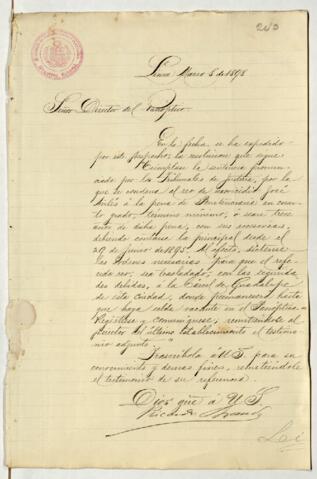 243
Lima, Marzo 8 de 1898
Señor Director del Panóptico.
En la fecha, se ha expedido
por este despacho, la resolucion que sigue
"Cúmplase la sentencia pronun-
ciada por los Tribunales de Justicia, por la
que se condena al reo de homicidio José
á la pena de Penitenciaria en cuarto
grado, término mínimo, ó sean trece
años de dicha pena, con sus accesorias
debiendo contarse la principal desde el
20 de Junio de 1895. Al efecto, díctense
las órdenes necesarias para que el refe-
rido reo, sea trasladado, con las seguridades
debidas, á la Cárcel de Guadalupe
de esta ciudad, donde permanecerá hasta
que haya celda vacante en el Panóptico.
Regístrese y comuníquese, remitiéndose al
Director del último establecimiento el testimo-
nio adjunto."
Trascríbola á US. para su
conocimiento y demas fines, remitiéndole
el testimonio de su referencia.
Dios gue á US.
Ricardo